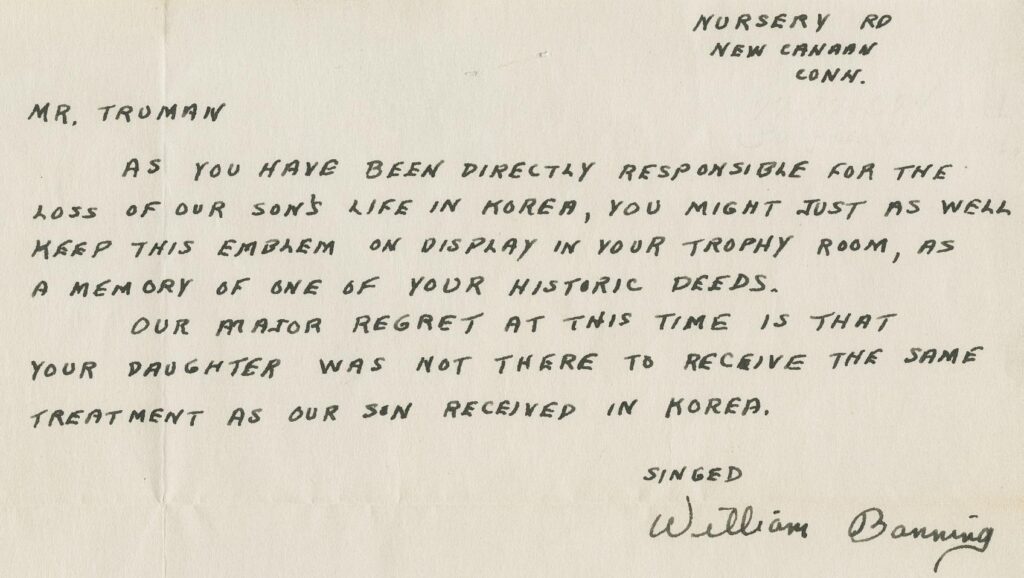 NURSERY RD
NEW CANAAN
CONN.
MR. TRUMAN
AS YOU HAVE BEEN DIRECTLY RESPONSIBLE FOR THE
LOSS OF OUR SON'S LIFE IN KOREA, YOU MIGHT JUST AS WELL
KEEP THIS EMBLEM ON DISPLAY IN YOUR TROPHY ROOM, AS
A MEMORY OF ONE OF YOUR HISTORIC DEEDS.
OUR MAJOR REGRET AT THIS TIME IS THAT
YOUR DAUGHTER WAS NOT THERE TO RECEIVE THE SAME
TREATMENT AS OUR SON RECEIVED IN KOREA.
SINGED
William Banning